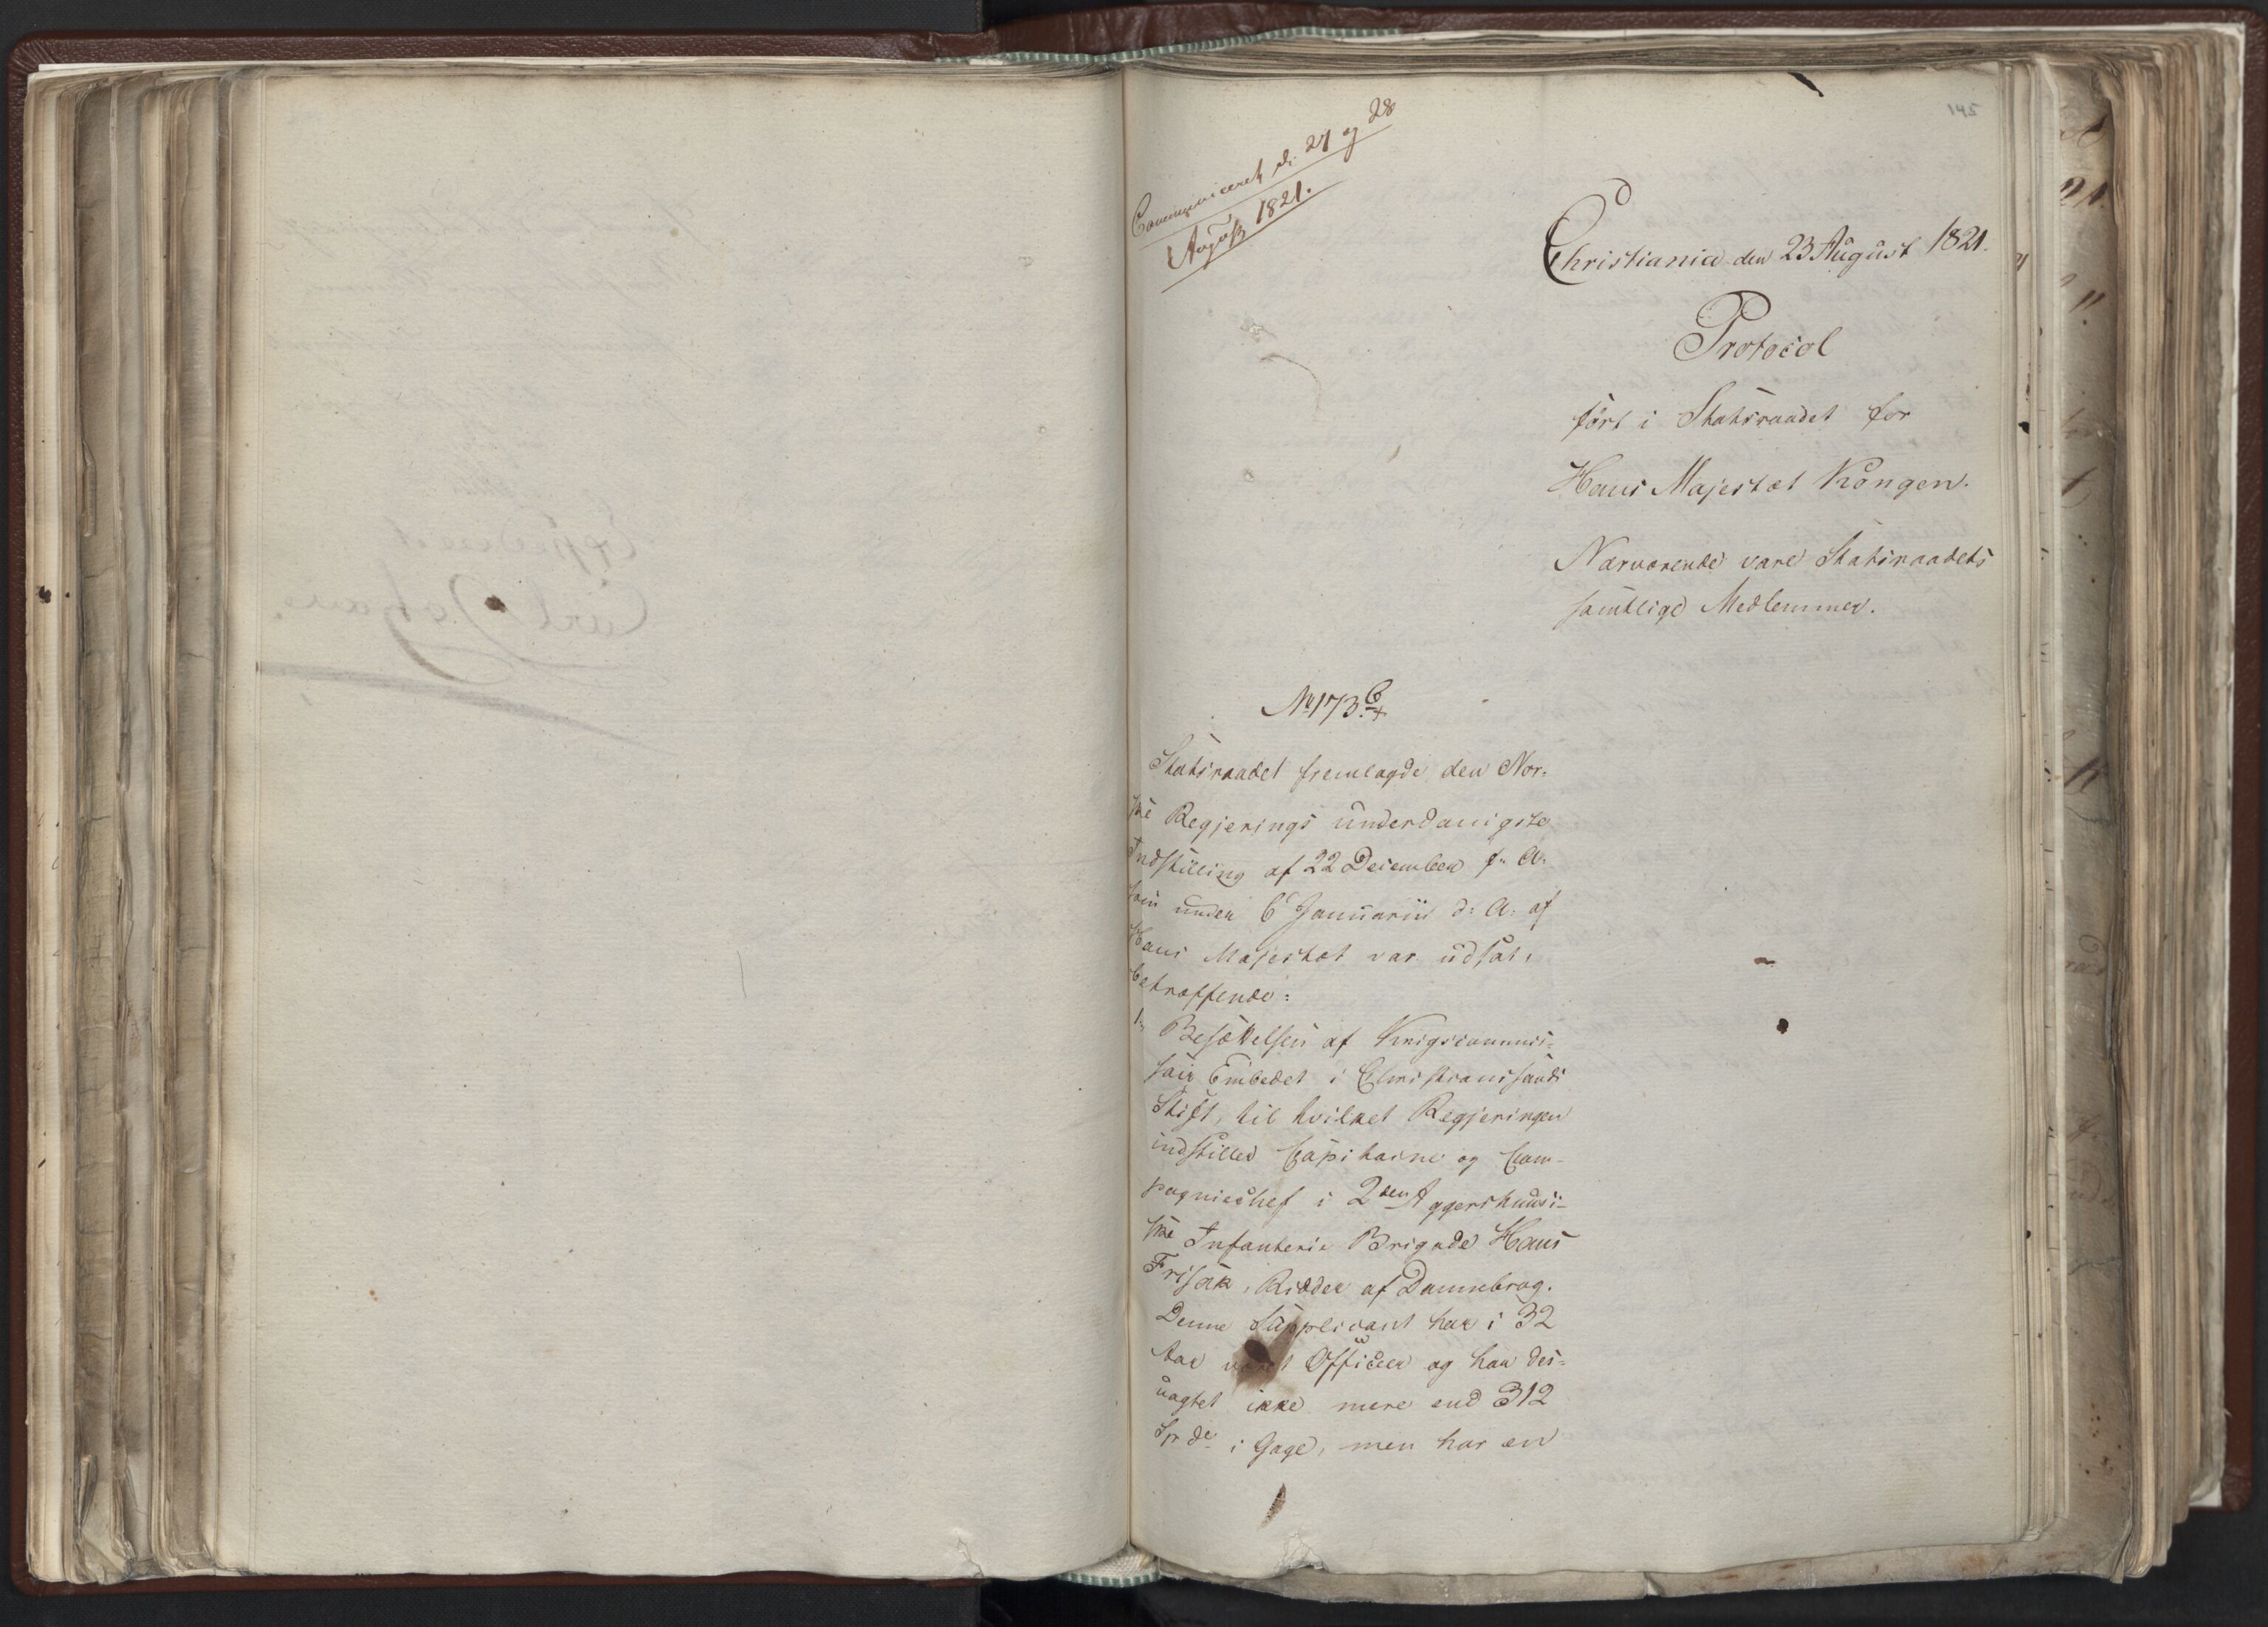 145
Communiceret d. 27 og 28
August 1821.
Christiania den 23 August 1821.
Protocol
ført i Statsraadet for
Hans Majestæt Kongen.
Nærværende vare Statsraadets
samtlige Medlemmer.
No 173
Statsraadet fremlagde den Nor-
ske Regjerings underdanigste
Indstilling af 22 December f. A.
som under 6 Januarii d: A: af
Hans Majestæt var udsat,
betræffende:
1, Besættelsen af Krigscommis-
sair Embedet i Christianssands
Stift, til hvilket Regjeringen
indstilled Capitaine og Com-
pagniechef i 2den Aggershuusi-
ske Infanterie Brigade Hans
Frisak, Ridder af Dannebrog.
Denne Supplicant har i 32
Aar været Officeer og har des-
uagtet ikke mere end 312
Spde i Gage, men har en